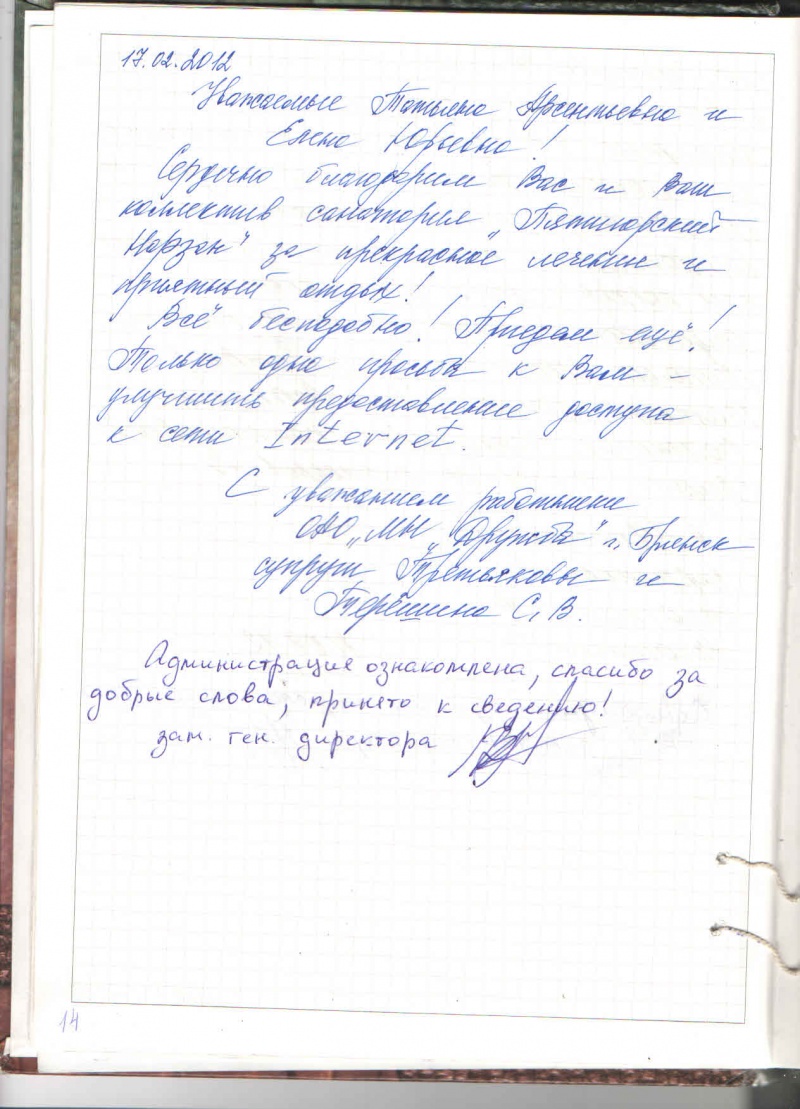 17.02.2012
Уважаемые Татьяна Арсентьевна и
Елена Юрьевна!
Сердечно благодарим Вас и Ваш
коллектив санатория „Пятигорский
Нарзан" за прекрасное лечение и
приятный отдых!
Всё бесподобно! Приедем ещё!
Только одна просьба к Вам –
улучшить предоставление доступа
к сети Internet.
С уважением работники
ОАО „МН „Дружба" г. Брянск
супруги Третьяковы и
Терешина С. В.
Администрация ознакомлена, спасибо за
добрые слова, принято к сведению!
зам. ген. директора
14